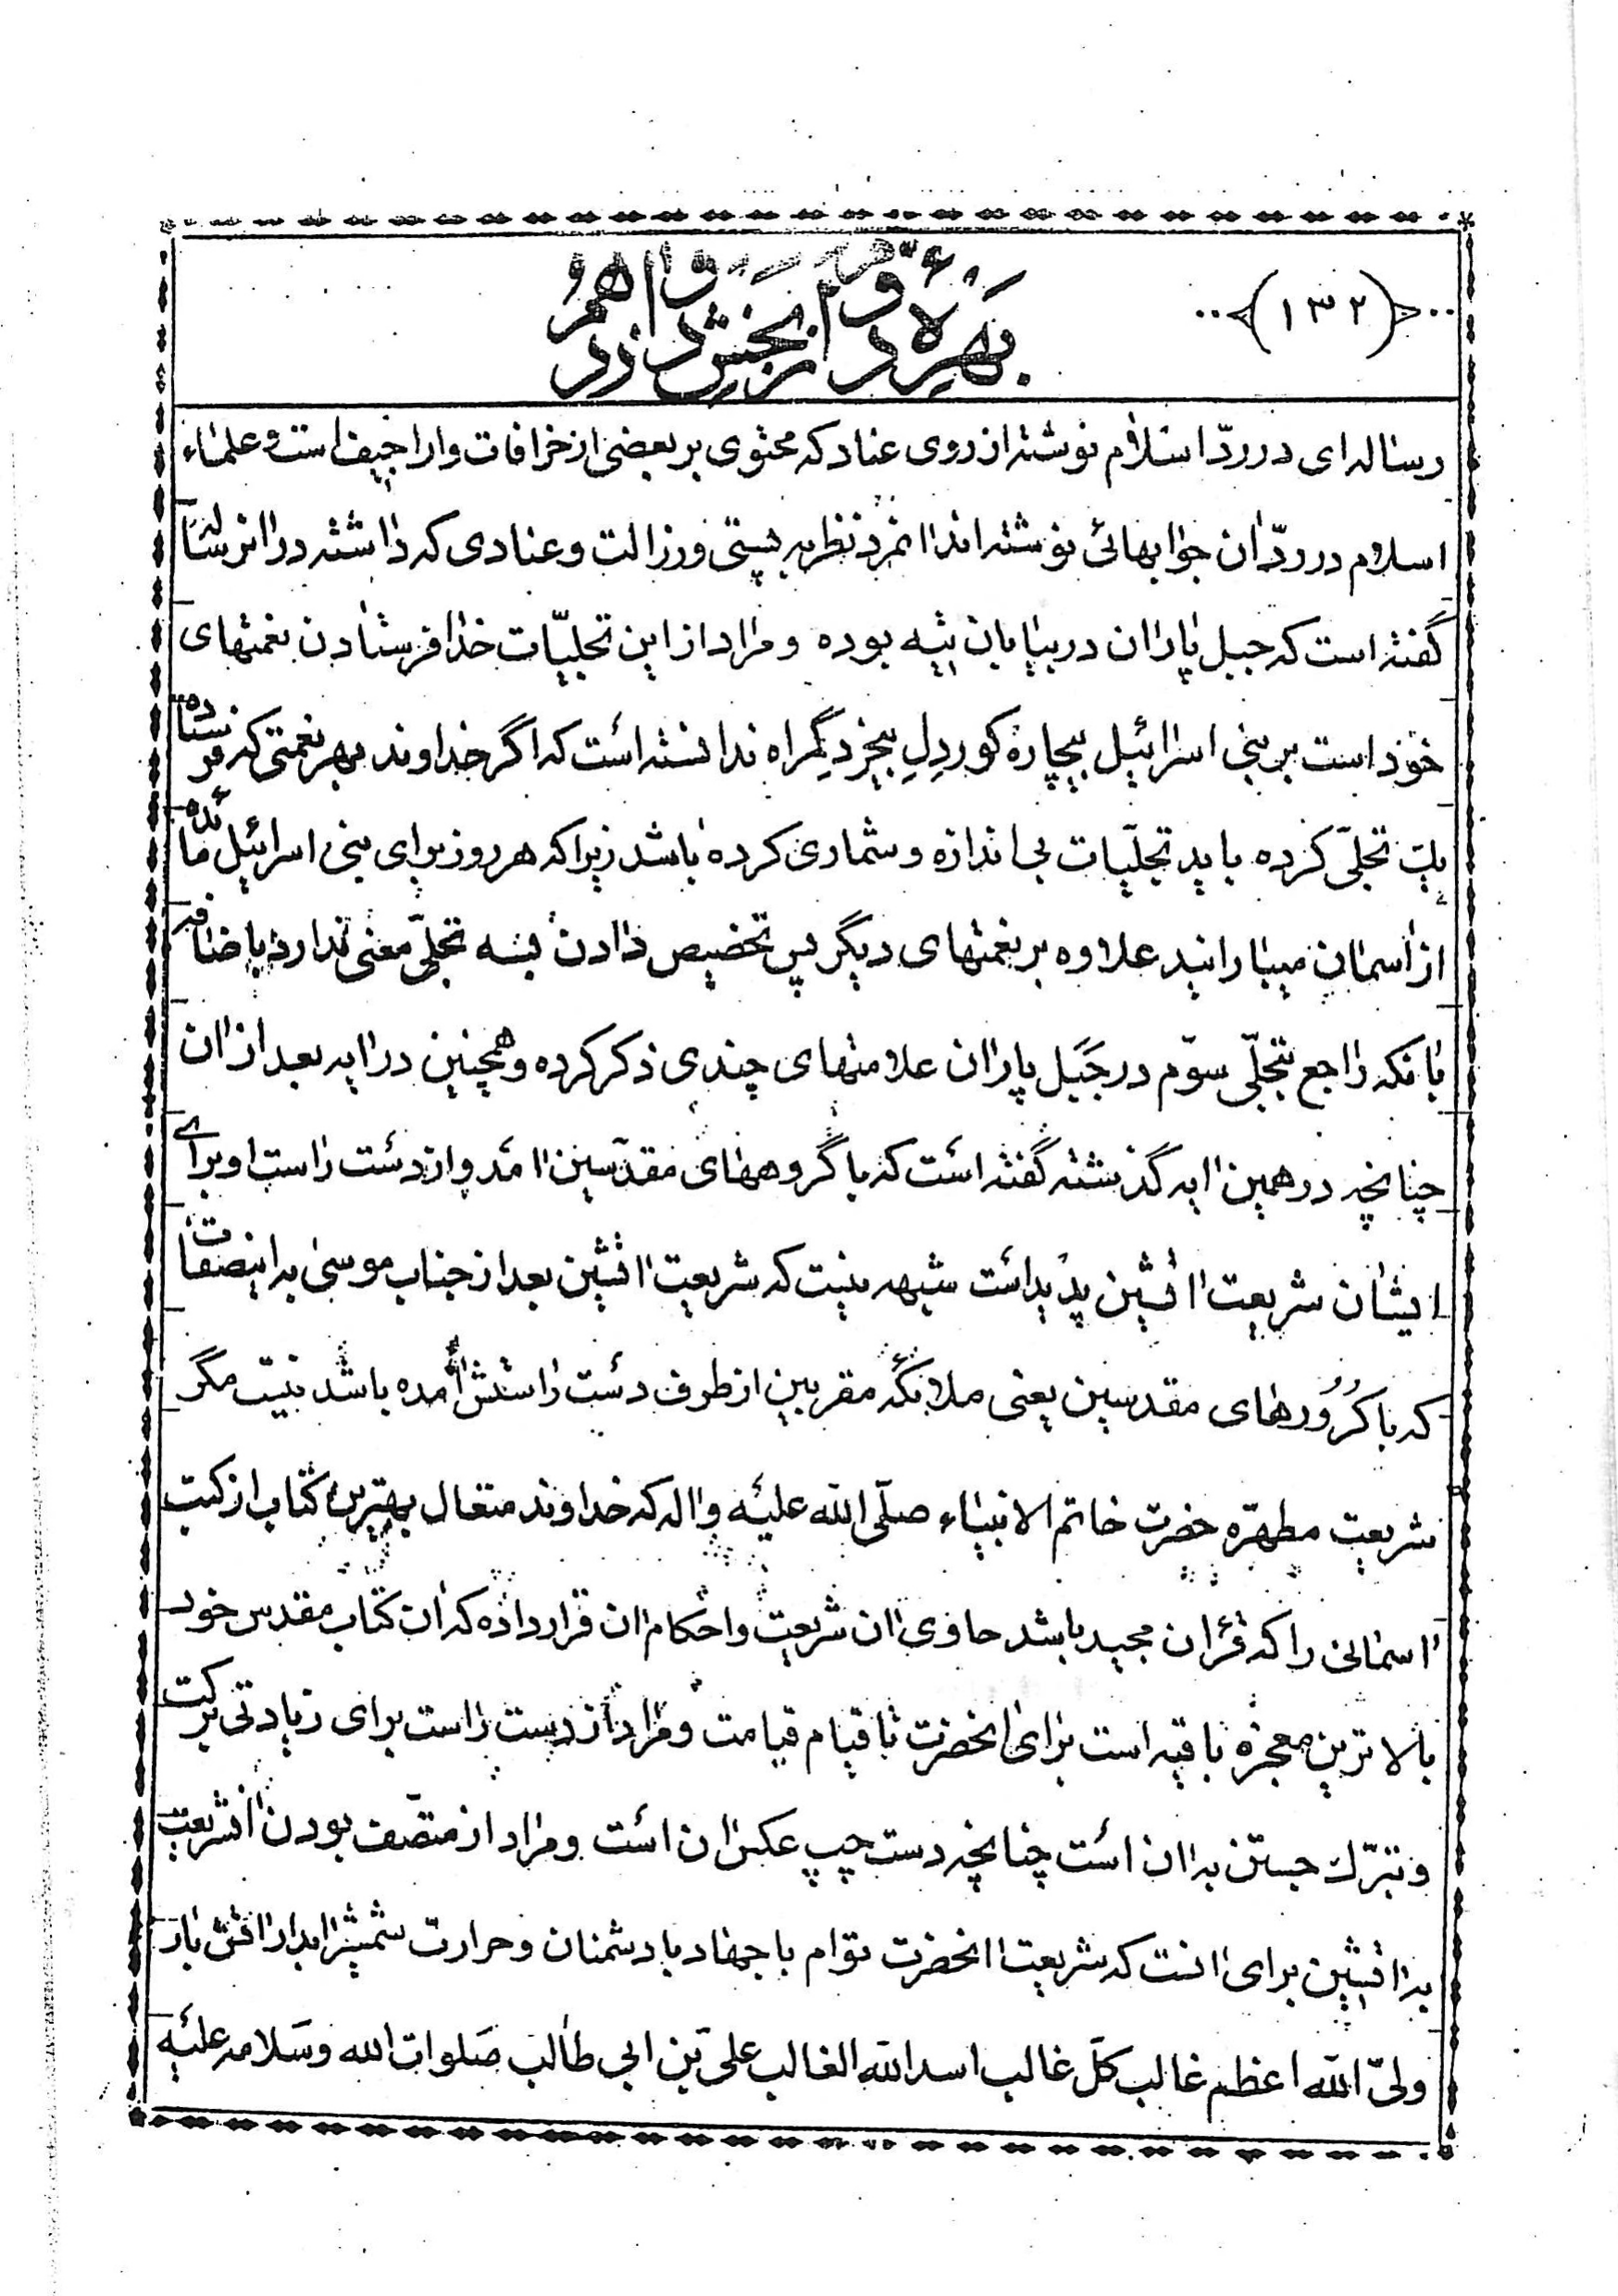 (۱۳۲)
بهره دوم از بخش دوازدهم
رساله‌ای در ردّ اسلام نوشته از روی عناد که محتوی بر بعضی از خرافات و اراجیف است و علماء
اسلام در ردّ ان جوابهائی نوشته‌اند انمرد نظر به پستی و رزالت و عنادی که داشته در انرساله
گفته است که جبل پاران در بیابان تیه بوده و مراد از این تجلیّات خدا فرستادن نعمتهای
خود است بر بنی اسرائیل بیچاره کوردلِ بیخردِ گمراه ندانسته است که اگر خداوند بهر نعمتی که فرستاده
یک تجلّی کرده باید تجلّیات بی اندازه و شماری کرده باشد زیرا که هر روز برای بنی اسرائیل مائده
از اسمان میبارانید علاوه بر نعمتهای دیگر پس تخصیص دادن بسه تجلّی معنی ندارد باضافه
بانکه راجع بتجلّی سوّم در جَبَل پاران علامتهای چندی ذکر کرده و همچنین در ایه بعد از ان
چنانچه در همین ایه گذشته گفته است که با گروههای مقدّسین امد و از دست راست او برای
ایشان شریعت اتشین پدید است شبهه نیست که شریعت اتشین بعد از جناب موسی به اینصفات
که با کُرُورهای مقدسین یعنی ملائکه مقربین از طرف دست راستش امده باشد نیست مگر
شریعت مطهّره حضرت خاتم الانبیاء صلّی الله علیه و اله که خداوند متعال بهترین کتاب از کتب
اسمانی را که قرءان مجید باشد حاوی ان شریعت و احکام ان قرار داده که ان کتاب مقدس خود
بالاترین معجزه باقیه است برای انحضرت تا قیام قیامت و مراد از دست راست برای زیادتی برکت
و تبرّک جستن به ان است چنانچه دست چپ عکس ان است و مراد از متّصف بودن انشریعت
به اتشین برای انست که شریعت انحضرت توام با جهاد با دشمنان و حرارت شمشیر ابدار اتش بار
ولیّ الله اعظم غالب کلّ غالب اسد الله الغالب علی بن ابی طالب صَلوات الله وسَلامه علیه